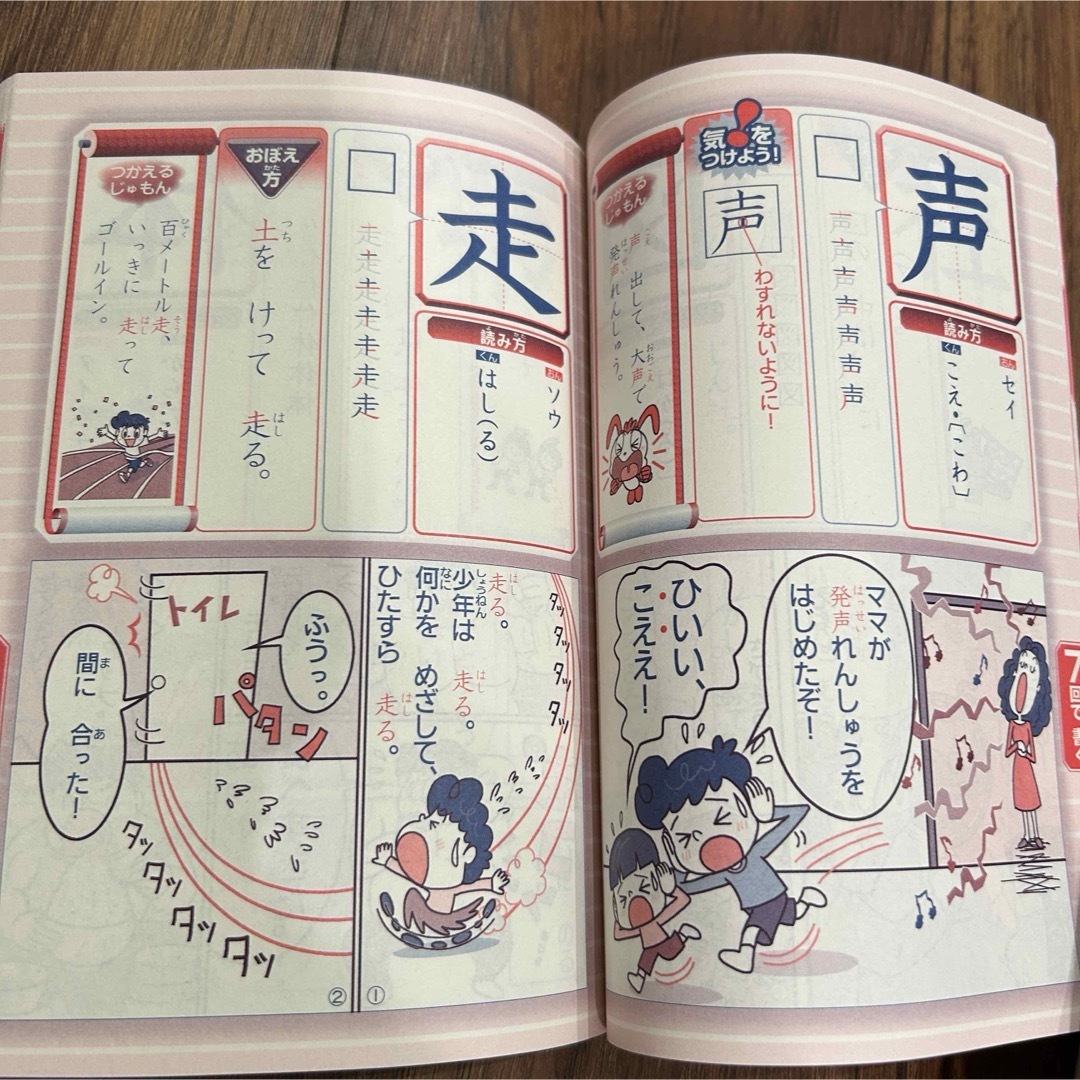 声
読み方
おん
セイ
くん
こえ・〔こわ〕
声声声声声声声
気をつけよう!
声
わすれないように!
つかえる
じゅもん
声出して、大声で
こえ おおごえ
発声れんしゅう。
はっせい
7回で書く
ママが
発声れんしゅうを
はっせい
はじめたぞ!
ひいい、
こええ!
走
読み方
おん
ソウ
くん
はし(る)
走走走走走走走
おぼえ方
かた
土を けって 走る。
つち はし
つかえる
じゅもん
百メートル走、
ひゃく そう
いっきに 走って
はし
ゴールイン。
走る。
はし
少年は 走る。
しょうねん はし
何かを めざして、
なに
ひたすら 走る。
はし
タッ
タッ
タッ
タッ
①
ふうっ。
トイレ
パタン
間に 合った!
ま あ
タッ
タッ
タッ
タッ
②